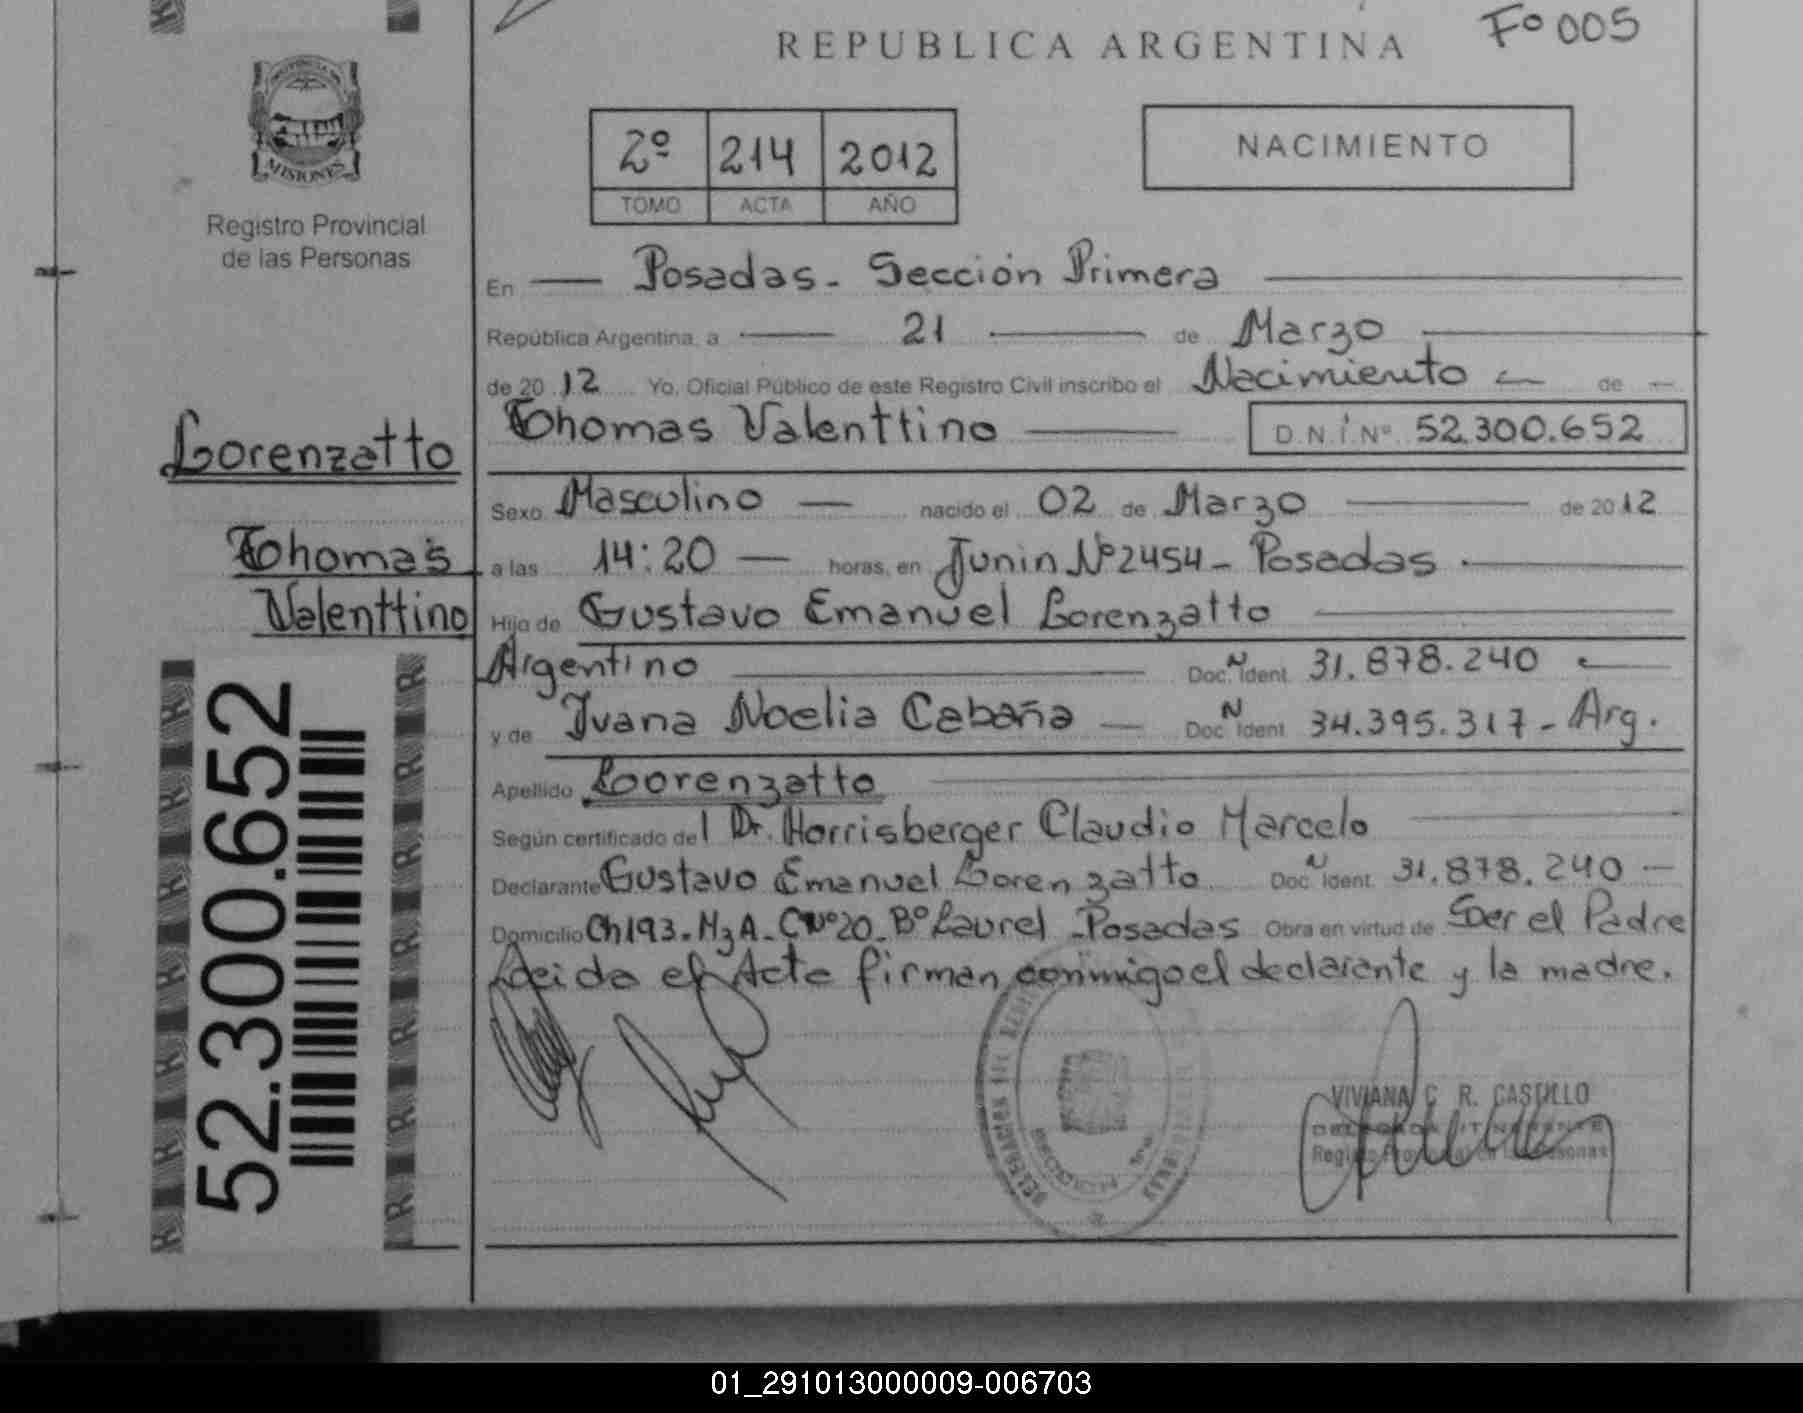 REPUBLICA ARGENTINA Fº 005
2º 214 2012
TOMO ACTA AÑO
NACIMIENTO
MISIONES
Registro Provincial
de las Personas
En Posadas - Sección Primera
República Argentina, a 21 de Marzo
de 20 12 Yo, Oficial Público de este Registro Civil inscribo el Nacimiento de
Thomas Valenttino D.N.I. Nº 52.300.652
Lorenzatto
Thomas
Valenttino
52.300.652
Sexo Masculino nacido el 02 de Marzo de 2012
a las 14:20 horas, en Junin Nº 2454 - Posadas
Hijo de Gustavo Emanuel Lorenzatto
Argentino Doc. N Ident. 31.878.240
y de Ivana Noelia Cabaña Doc. N Ident. 34.395.317 - Arg.
Apellido Lorenzatto
Según certificado del Dr. Horrisberger Claudio Marcelo
Declarante Gustavo Emanuel Lorenzatto Doc. N Ident. 31.878.240
Domicilio Ch 193. Mz A - C Nº 20 - Bº Laurel - Posadas Obra en virtud de Ser el Padre
Leida el Acta firman conmigo el declarante y la madre.
VIVIANA C. R. CASTILLO
DELEGADA ITINERANTE
Registro Provincial de las Personas
01_291013000009-006703